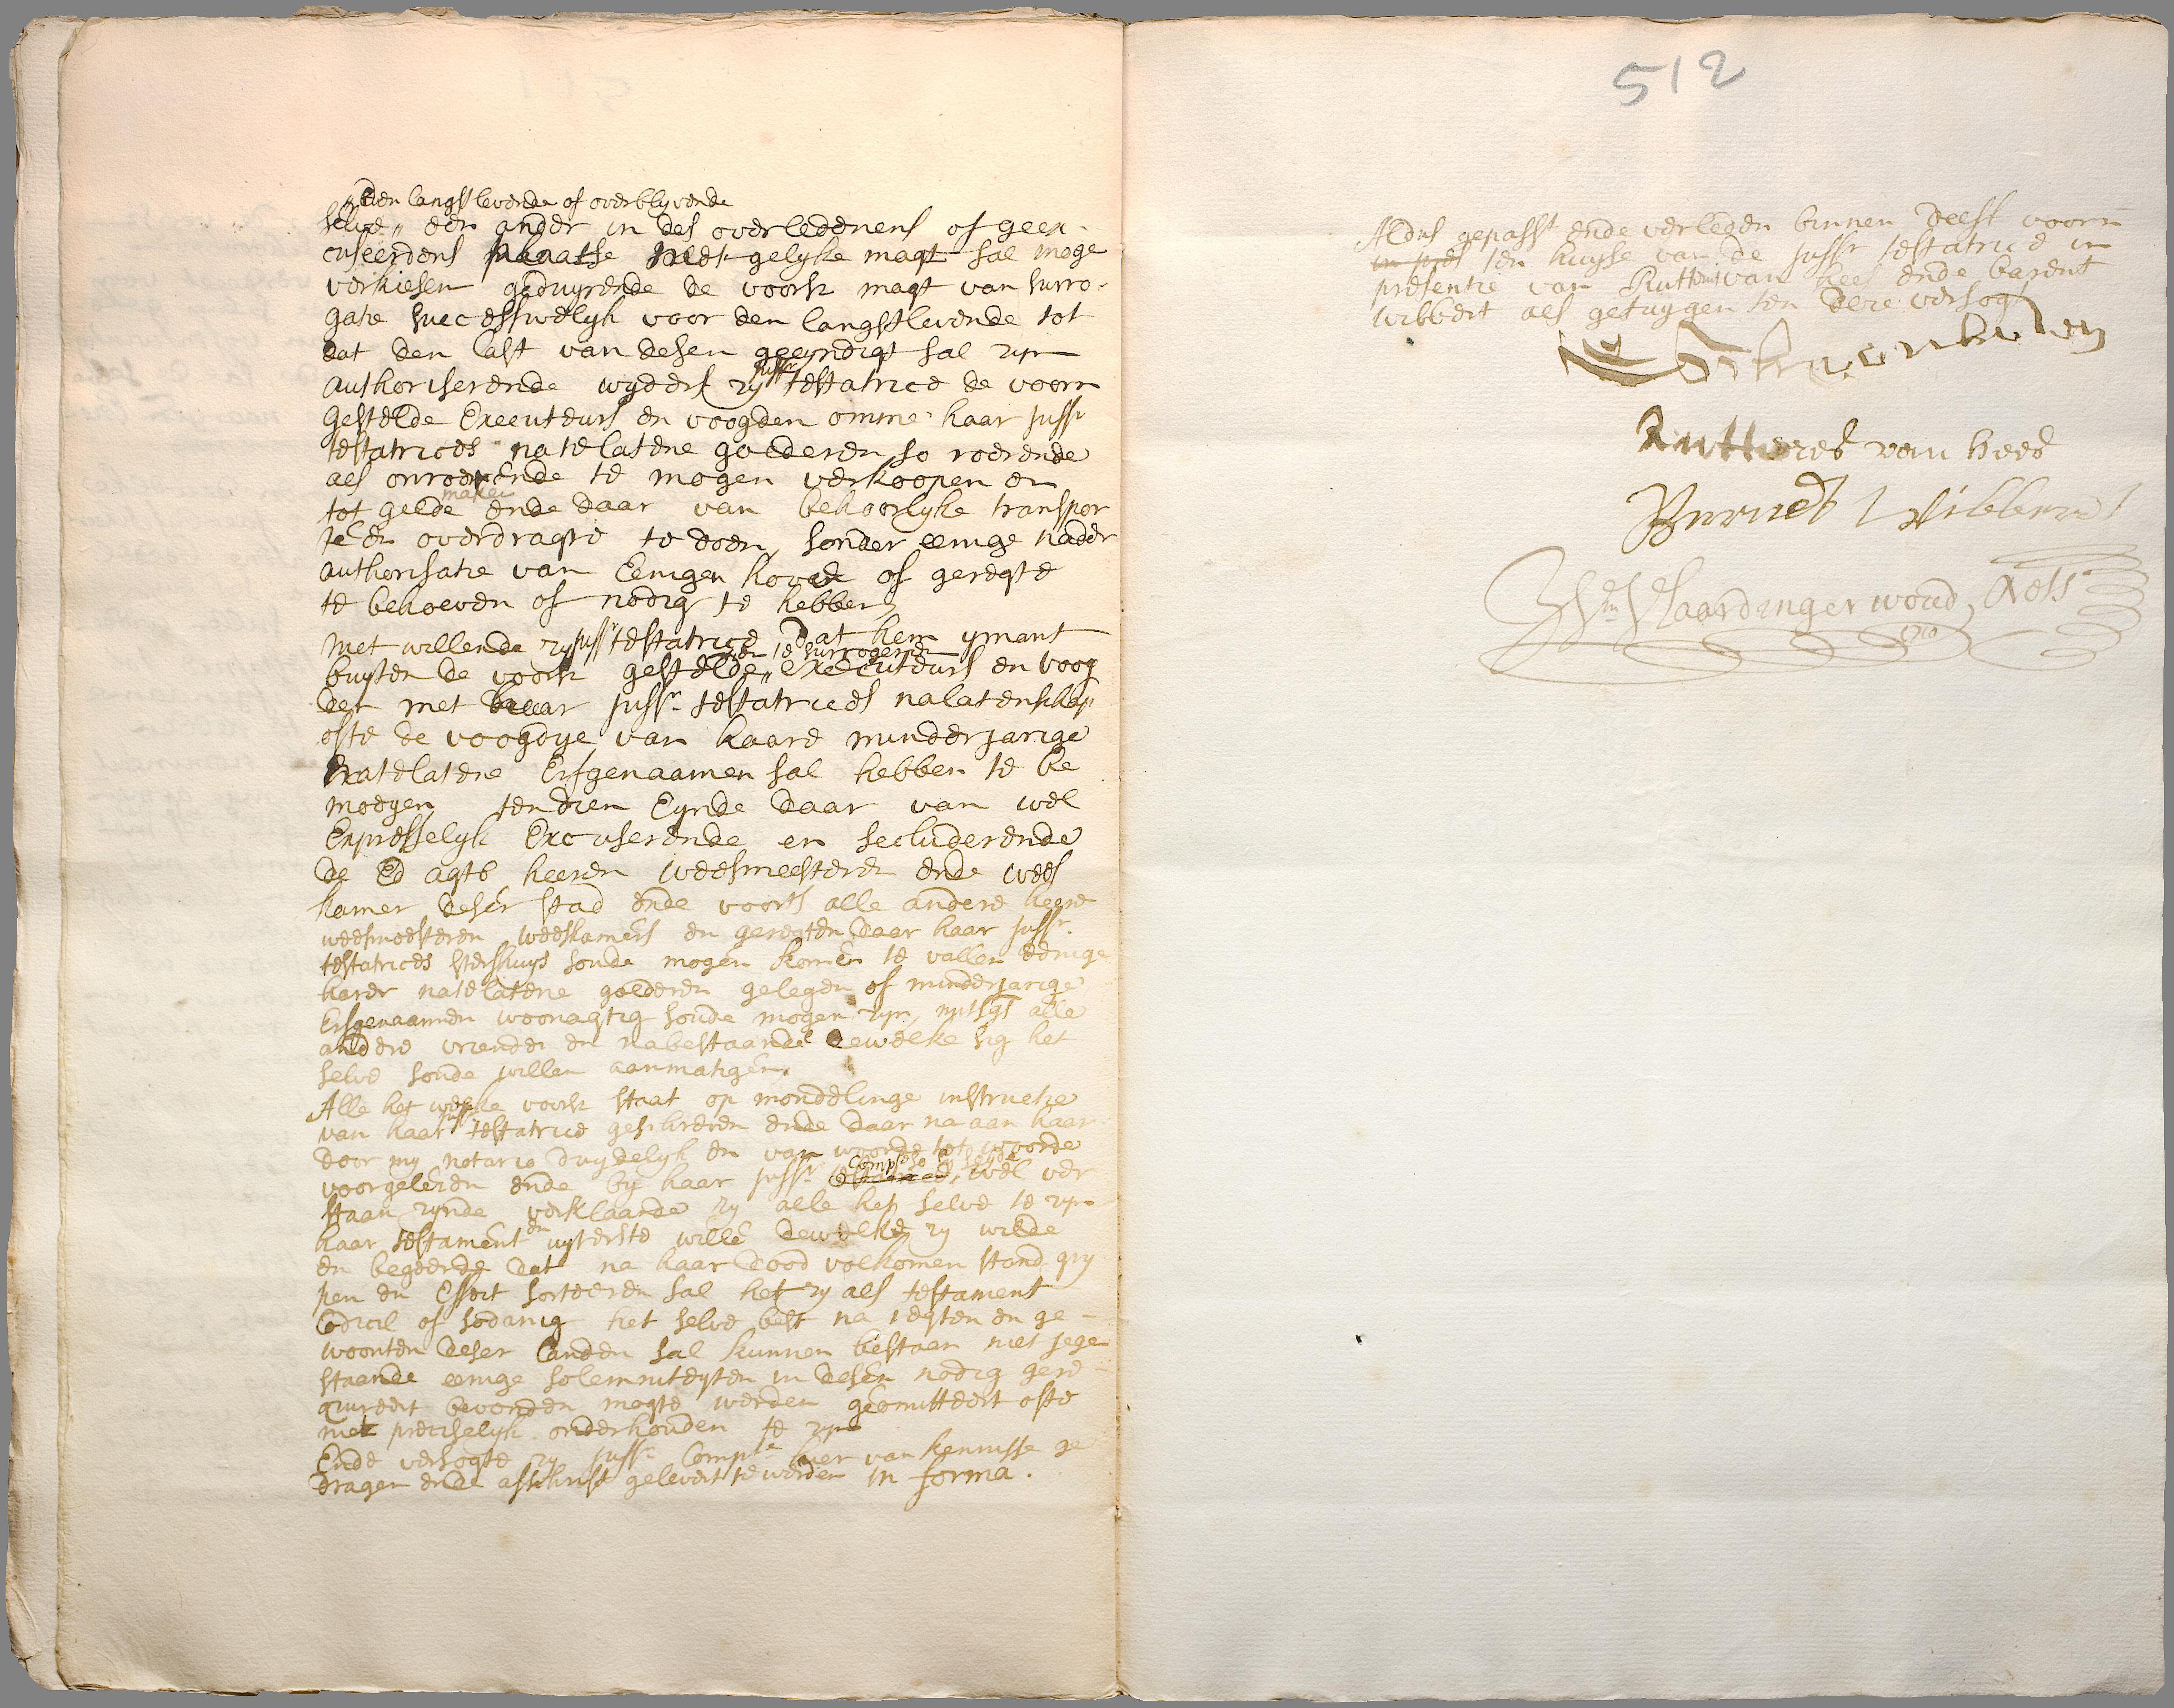 den langstlevende of overblyvende
selve „ een ander in des overledenens of geex-
cuseerdens plaatse met gelyke magt sal moge
verkiesen geduyrende de voorsz magt van surro-
gatie successivelyk voor den langstlevende tot
dat den last van desen geeyndigt sal zyn
authoriserende wyders zy juffr testatrice de voorn
gestelde Executeurs en voogden omme haar juffr
testatrices natelatene goederen so roerende
als onroerende te mogen verkoopen en
tot gelde maken ende daar van behoorlyke transpor
te en overdragte te doen, sonder eenige nader
authorisatie van Eenigen hove of geregte
te behoeven of nodig te hebben
Niet willende zy juffr testatrice dat hem ymant
buyten de voorsz gestelde „ en te surrogeren executeurs en voog
den met haar juffr testatrices nalatenschap
ofte de voogdye van haare minderjarige
natelatene Erfgenaamen sal hebben te be
moeyen ten dien Eynde daar van wel
Expresselyk Excuserende en secluderende
de Ed agtb heeren weesmeesteren ende wees
kamer deser stad ende voorts alle andere heere
weesmeesteren weeskamers en geregten daar haar juffr
testatrices sterfhuys soude mogen komen te vallen eenige
harer natelatene goederen gelegen of minderjarige
Erfgenaamen woonagtig soude mogen zyn, mitsgs alle
andere vrienden en nabestaande dewelke sig het
selve soude willen aanmatigen,
Alle het welke voorsz staat op mondelinge instructie
van haar juffr testatrice geschreven ende daar na aan haar
door my notario duydelyk en van woorde tot woorde
voorgelesen ende by haar juffr Compte so sy seyde, wel ver
staan zynde verklaarde zy alle het selve te zyn
haar testament en uyterste wille dewelke zy wilde
en begeerde dat na haar dood volkomen stand gry
pen en Effect sorteren sal het zy als testament
Codicil of sodanig het selve best na regten en ge-
woonten deser landen sal kunnen bestaan niet jege
staande eenige solemniteyten in desen nodig gere-
quireert bevonden mogte werden geomitteert ofte
niet preciselyk onderhouden te zyn
Ende versogte zy juffr Compte hier van kennisse ge
dragen ende affschrift gelevert te werden in forma.
512
Aldus gepasst ende verleden binnen deese voorn
in pres ten huyse van de juffr testatrice in
presentie van Rutterus van hees ende barent
wibbert als getuygen ten dese versogt
Rutterus van hees
Barent Wibbert
Vlaardingerwoud, Nots
1710